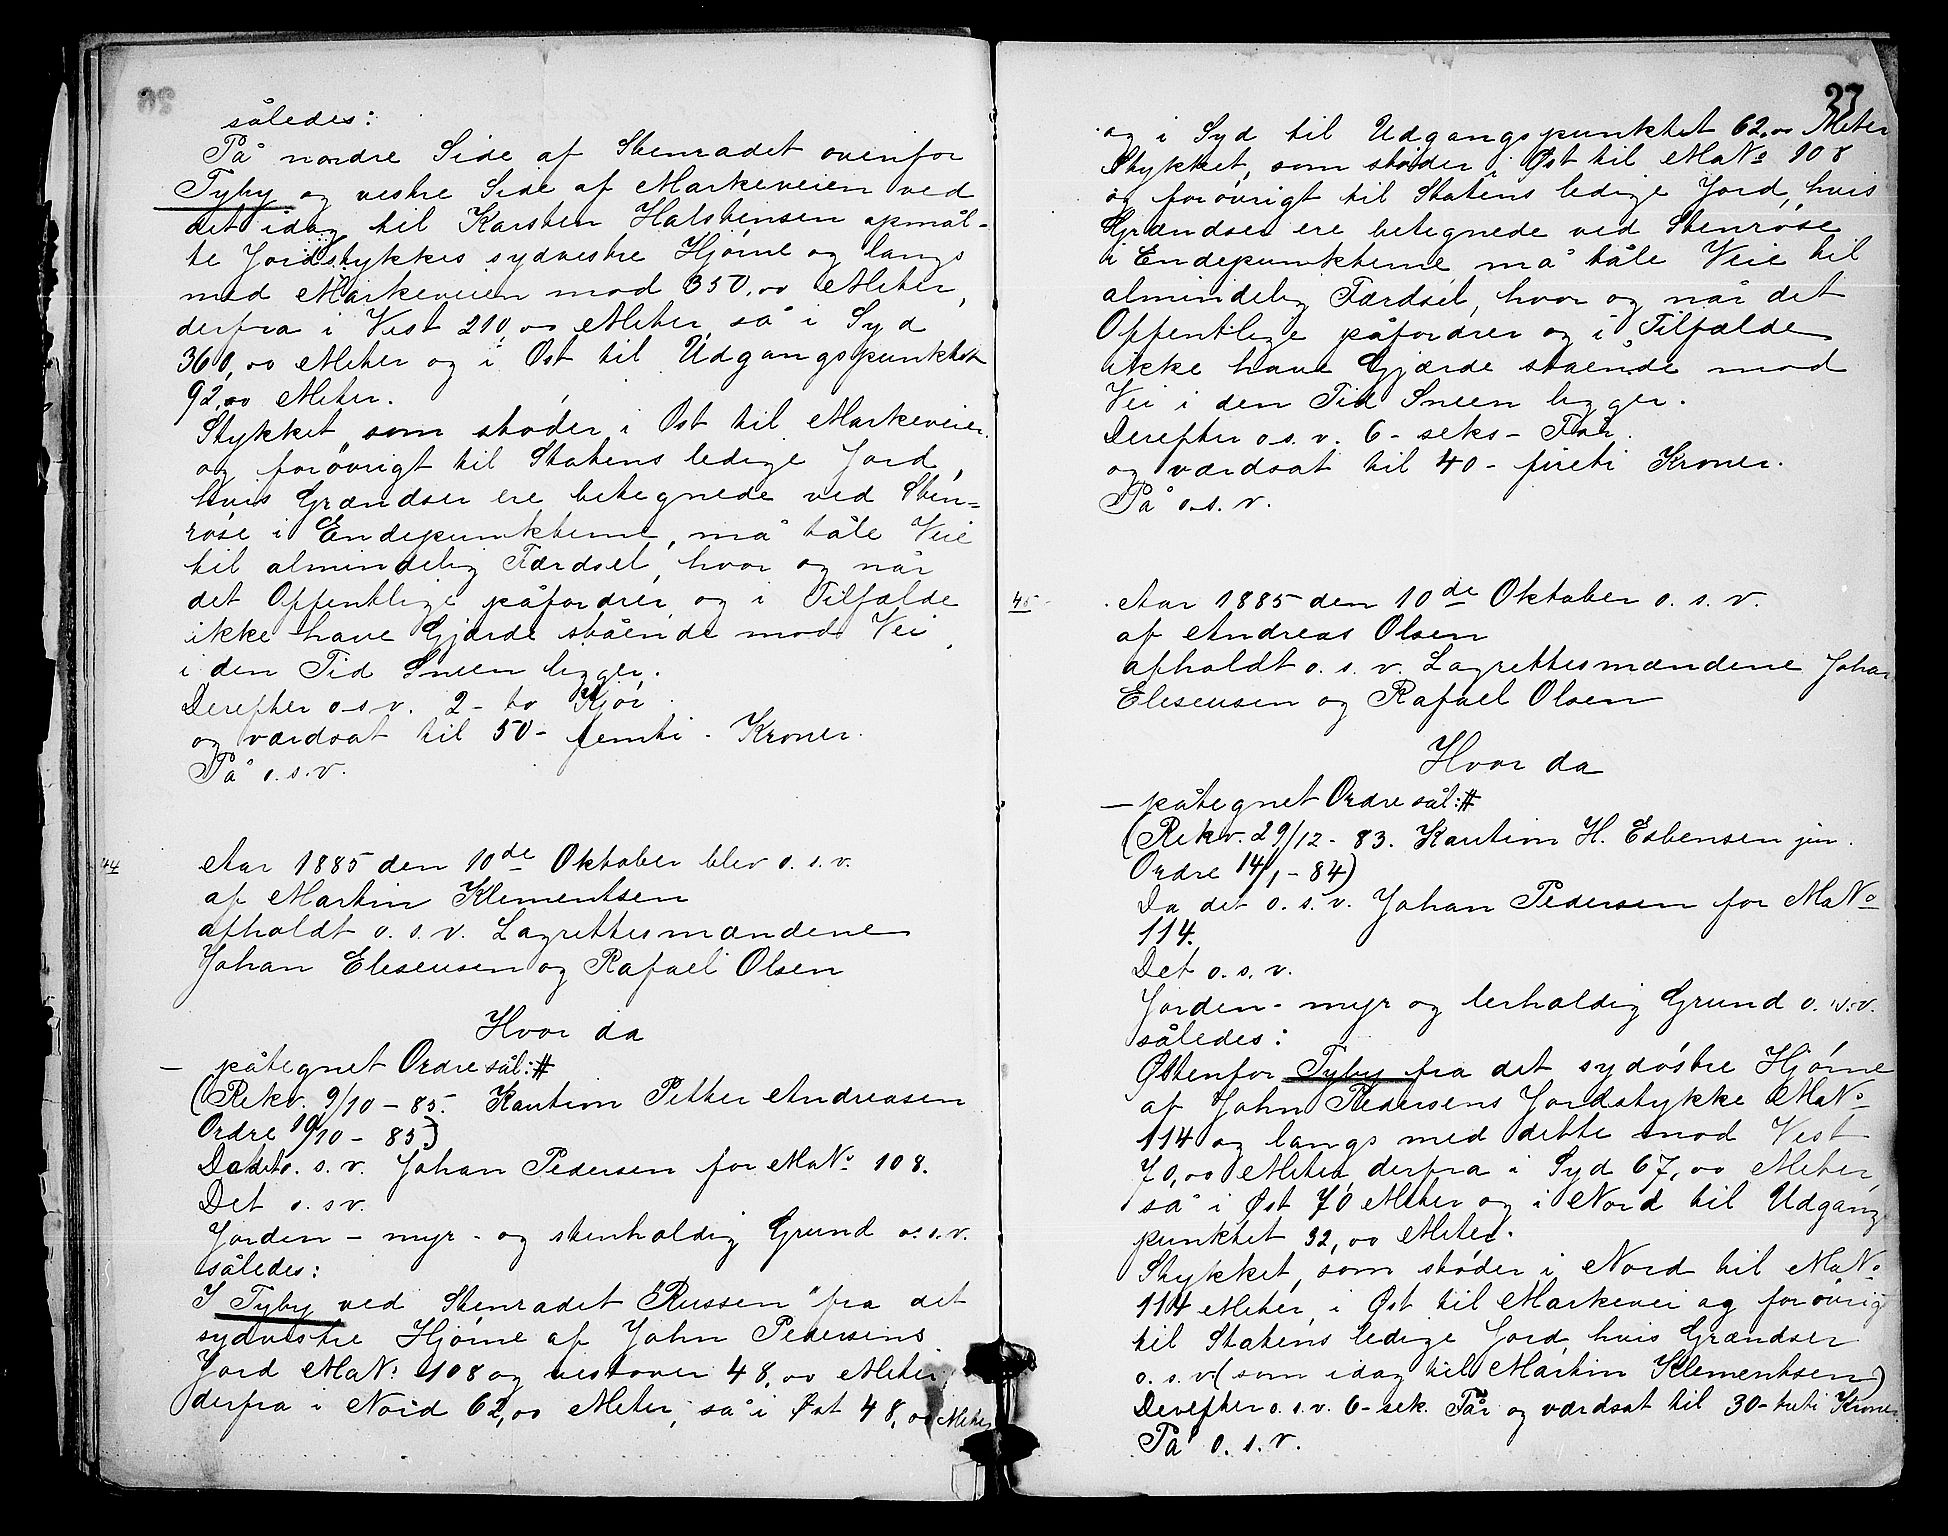 således:
På nordre Side af Stenradet ovenfor
Tyby og vestre Side af Markeveien ved
det idag til Karsten Halstensen opmål-
te Jordstykkes sydvestre Hjørne og langs
med Markeveien mod 350,00 Meter,
derfra i Vest 210,00 Meter, så i Syd
360,00 Meter og i Øst til Udgangspunktet
92,00 Meter.
Stykket, som støder i Øst til Markeveien
og forøvrigt til Statens ledige Jord,
hvis Grændser ere betegnede ved Sten-
røse i Endepunkterne, må tåle Veie
til almindelig Færdsel, hvor og når
det Offentlige påfordrer og i Tilfælde
ikke have Gjærde stående mod Vei
i den Tid Sneen ligger.
Derefter o.s.v. 2 - to Kjør
og værdsat til 50 - femti - Kroner.
På o.s.v.
44
Aar 1885 den 10de Oktober blev o.s.v.
af Martin Klementsen
afholdt o.s.v. Lagrettesmændene
Johan Eliseusen og Rafael Olsen
Hvor da
— påtegnet Ordre sål:#
(Rekv. 9/10 - 85. Kaution Petter Andreasen
Ordre 10/10 - 85)
Da det o.s.v. Johan Pedersen for MaNo 108.
Det o.s.v.
Jorden - myr - og stenholdig Grund o.s.v.
således:
I Tyby ved Stenradet "Russen" fra det
sydvestre Hjørne af John Pedersens
Jord MaNo 108 og vestover 48,00 Meter,
derfra i Nord 62,00 Meter, så i Øst 48,00 Meter
37
og i Syd til Udgangspunktet 62,00 Meter
Stykket, som støder i Øst til MaNo 108
og forøvrigt til Statens ledige Jord, hvis
Grændser ere betegnede ved Stenrøse
i Endepunkterne må tåle Veie til
almindelig Færdsel, hvor og når det
Offentlige påfordrer og i Tilfælde
ikke have Gjærde stående mod
Vei i den Tid Sneen ligger.
Derefter o.s.v. 6 - seks - Får.
og værdsat til 40 - fireti Kroner.
På o.s.v.
45
Aar 1885 den 10de Oktober o.s.v.
af Andreas Olsen
afholdt o.s.v. Lagrettesmændene Johan
Eliseusen og Rafael Olsen
Hvor da
— påtegnet Ordre sål:#
(Rekv. 29/12 - 83. Kaution H. Esbensen jun.
Ordre 14/1 - 84)
Da det o.s.v. Johan Pedersen for MaNo
114.
Det o.s.v.
Jorden - myr og lerholdig Grund o.s.v.
således:
Østenfor Tyby fra det sydøstre Hjørne
af John Pedersens Jordstykke MaNo
114 og langs med dette mod Vest
70,00 Meter, derfra i Syd 67,00 Meter,
så i Øst 70 Meter og i Nord til Udgangs
punktet 32,00 Meter.
Stykket, som støder i Nord til MaNo
114 Meter, i Øst til Markevei og forøvrigt
til Statens ledige Jord, hvis Grændser
o.s.v. (som idag til Martin Klementsen)
Derefter o.s.v. 6 - sek. Får og værdsat til 30 - treti Kroner
På o.s.v.